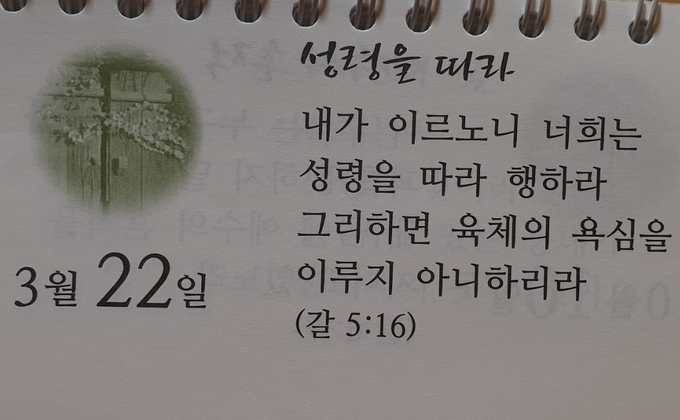 성령을 따라
내가 이르노니 너희는
성령을 따라 행하라
그리하면 육체의 욕심을
이루지 아니하리라
(갈 5:16)
3월 22일